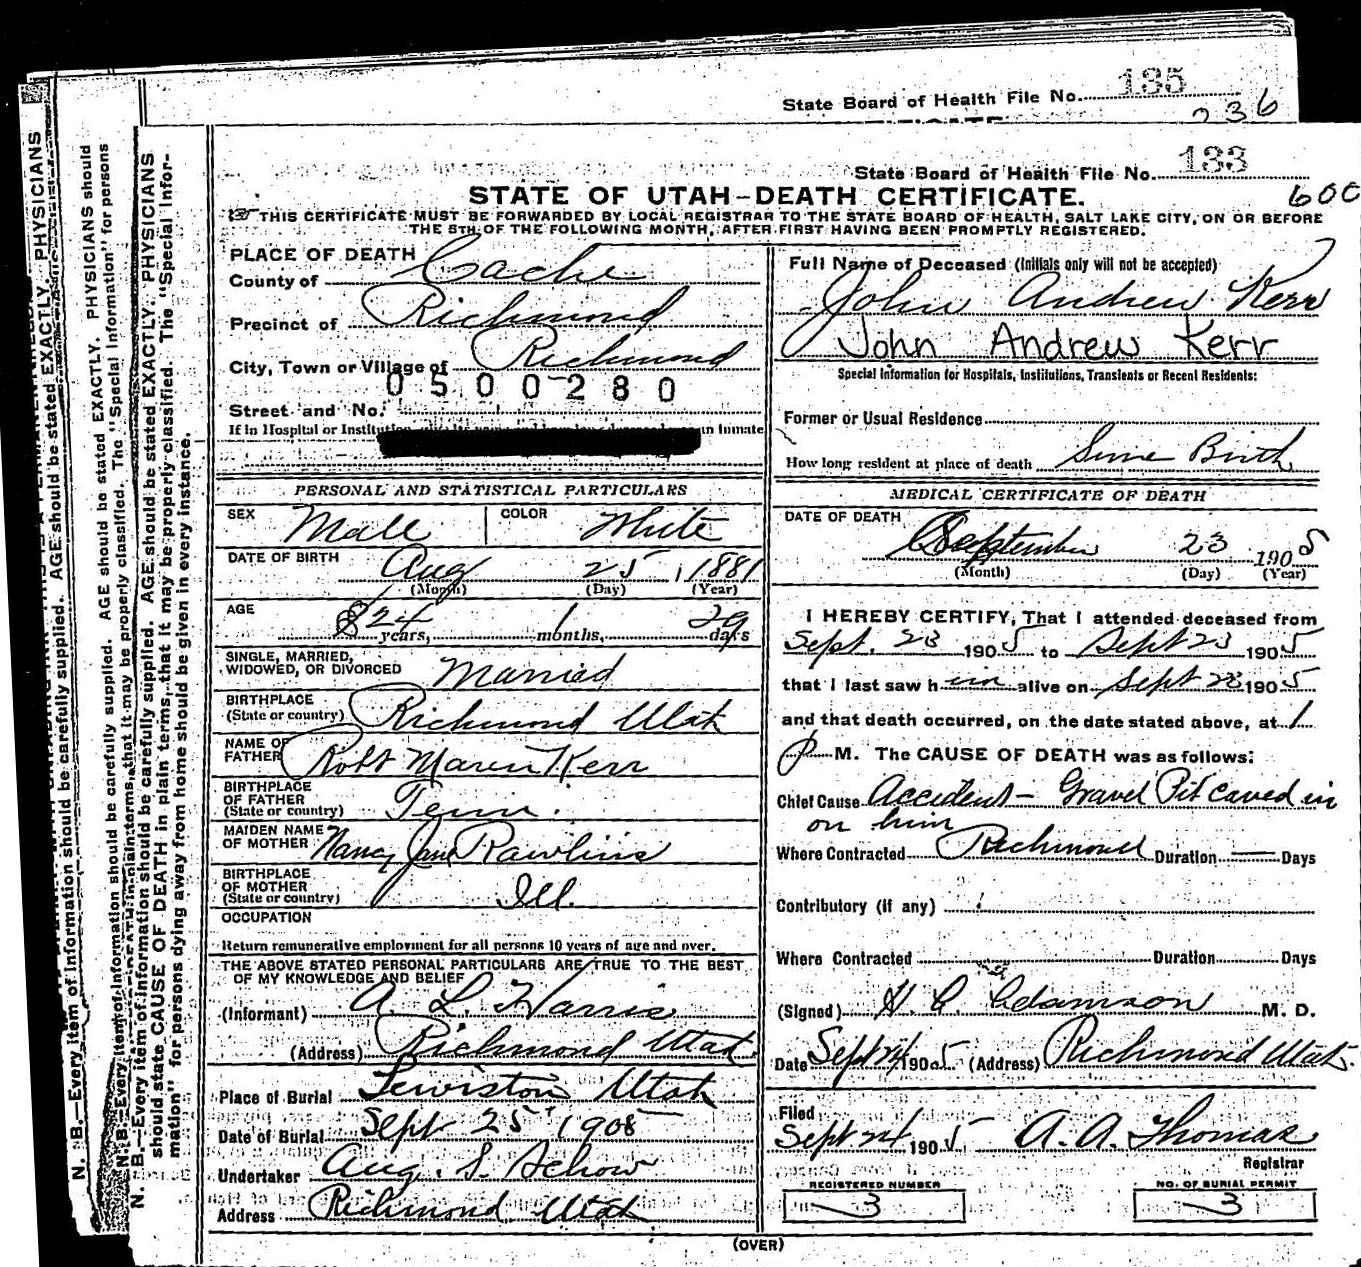 State Board of Health File No. 135
236
State Board of Health File No. 133
600
STATE OF UTAH-DEATH CERTIFICATE.
THIS CERTIFICATE MUST BE FORWARDED BY LOCAL REGISTRAR TO THE STATE BOARD OF HEALTH, SALT LAKE CITY, ON OR BEFORE
THE 5TH OF THE FOLLOWING MONTH, AFTER FIRST HAVING BEEN PROMPTLY REGISTERED.
PLACE OF DEATH
County of Cache
Precinct of Richmond
City, Town or Village of Richmond
0500280
Street and No.
If in Hospital or Institution an inmate
PERSONAL AND STATISTICAL PARTICULARS
SEX Male COLOR White
DATE OF BIRTH Aug 25, 1881
(Month) (Day) (Year)
AGE 24 years, 1 months, 29 days
SINGLE, MARRIED,
WIDOWED, OR DIVORCED Married
BIRTHPLACE
(State or country) Richmond Utah
NAME OF
FATHER Robt Marion Kerr
BIRTHPLACE
OF FATHER
(State or country) Tenn.
MAIDEN NAME
OF MOTHER Nancy Jane Rawlins
BIRTHPLACE
OF MOTHER
(State or country) Ill.
OCCUPATION
Return remunerative employment for all persons 10 years of age and over.
THE ABOVE STATED PERSONAL PARTICULARS ARE TRUE TO THE BEST
OF MY KNOWLEDGE AND BELIEF
(Informant) A. L. Harris
(Address) Richmond Utah.
Place of Burial Lewiston Utah
Date of Burial Sept 25" 1905
Undertaker Aug. S. Schow
Address Richmond Utah
Full Name of Deceased (Initials only will not be accepted)
John Andrew Kerr
John Andrew Kerr
Special Information for Hospitals, Institutions, Transients or Recent Residents:
Former or Usual Residence
How long resident at place of death Since Birth
MEDICAL CERTIFICATE OF DEATH
DATE OF DEATH
September 23 1905
(Month) (Day) (Year)
I HEREBY CERTIFY, That I attended deceased from
Sept. 23 1905 to Sept 23 1905
that I last saw him alive on Sept 23 1905
and that death occurred, on the date stated above, at 1
P M. The CAUSE OF DEATH was as follows:
Chief Cause Accident - Gravel Pit caved in
on him
Where Contracted Richmond Duration — Days
Contributory (if any)
Where Contracted Duration Days
(Signed) H. C. Adamson M. D.
Date Sept 24 1905 (Address) Richmond Utah.
Filed
Sept 24 1905 A. A. Thomas
Registrar
REGISTERED NUMBER NO. OF BURIAL PERMIT
3 3
(OVER)
N. B.—Every item of information should be carefully supplied. AGE should be stated EXACTLY. PHYSICIANS
N. B.—Every item of information should be carefully supplied. AGE should be stated EXACTLY. PHYSICIANS should
that it may be properly classified. The "Special Information" for persons
N. B.—Every item of information should be carefully supplied. AGE should be stated EXACTLY. PHYSICIANS
should state CAUSE OF DEATH in plain terms, that it may be properly classified. The "Special Infor-
mation" for persons dying away from home should be given in every instance.